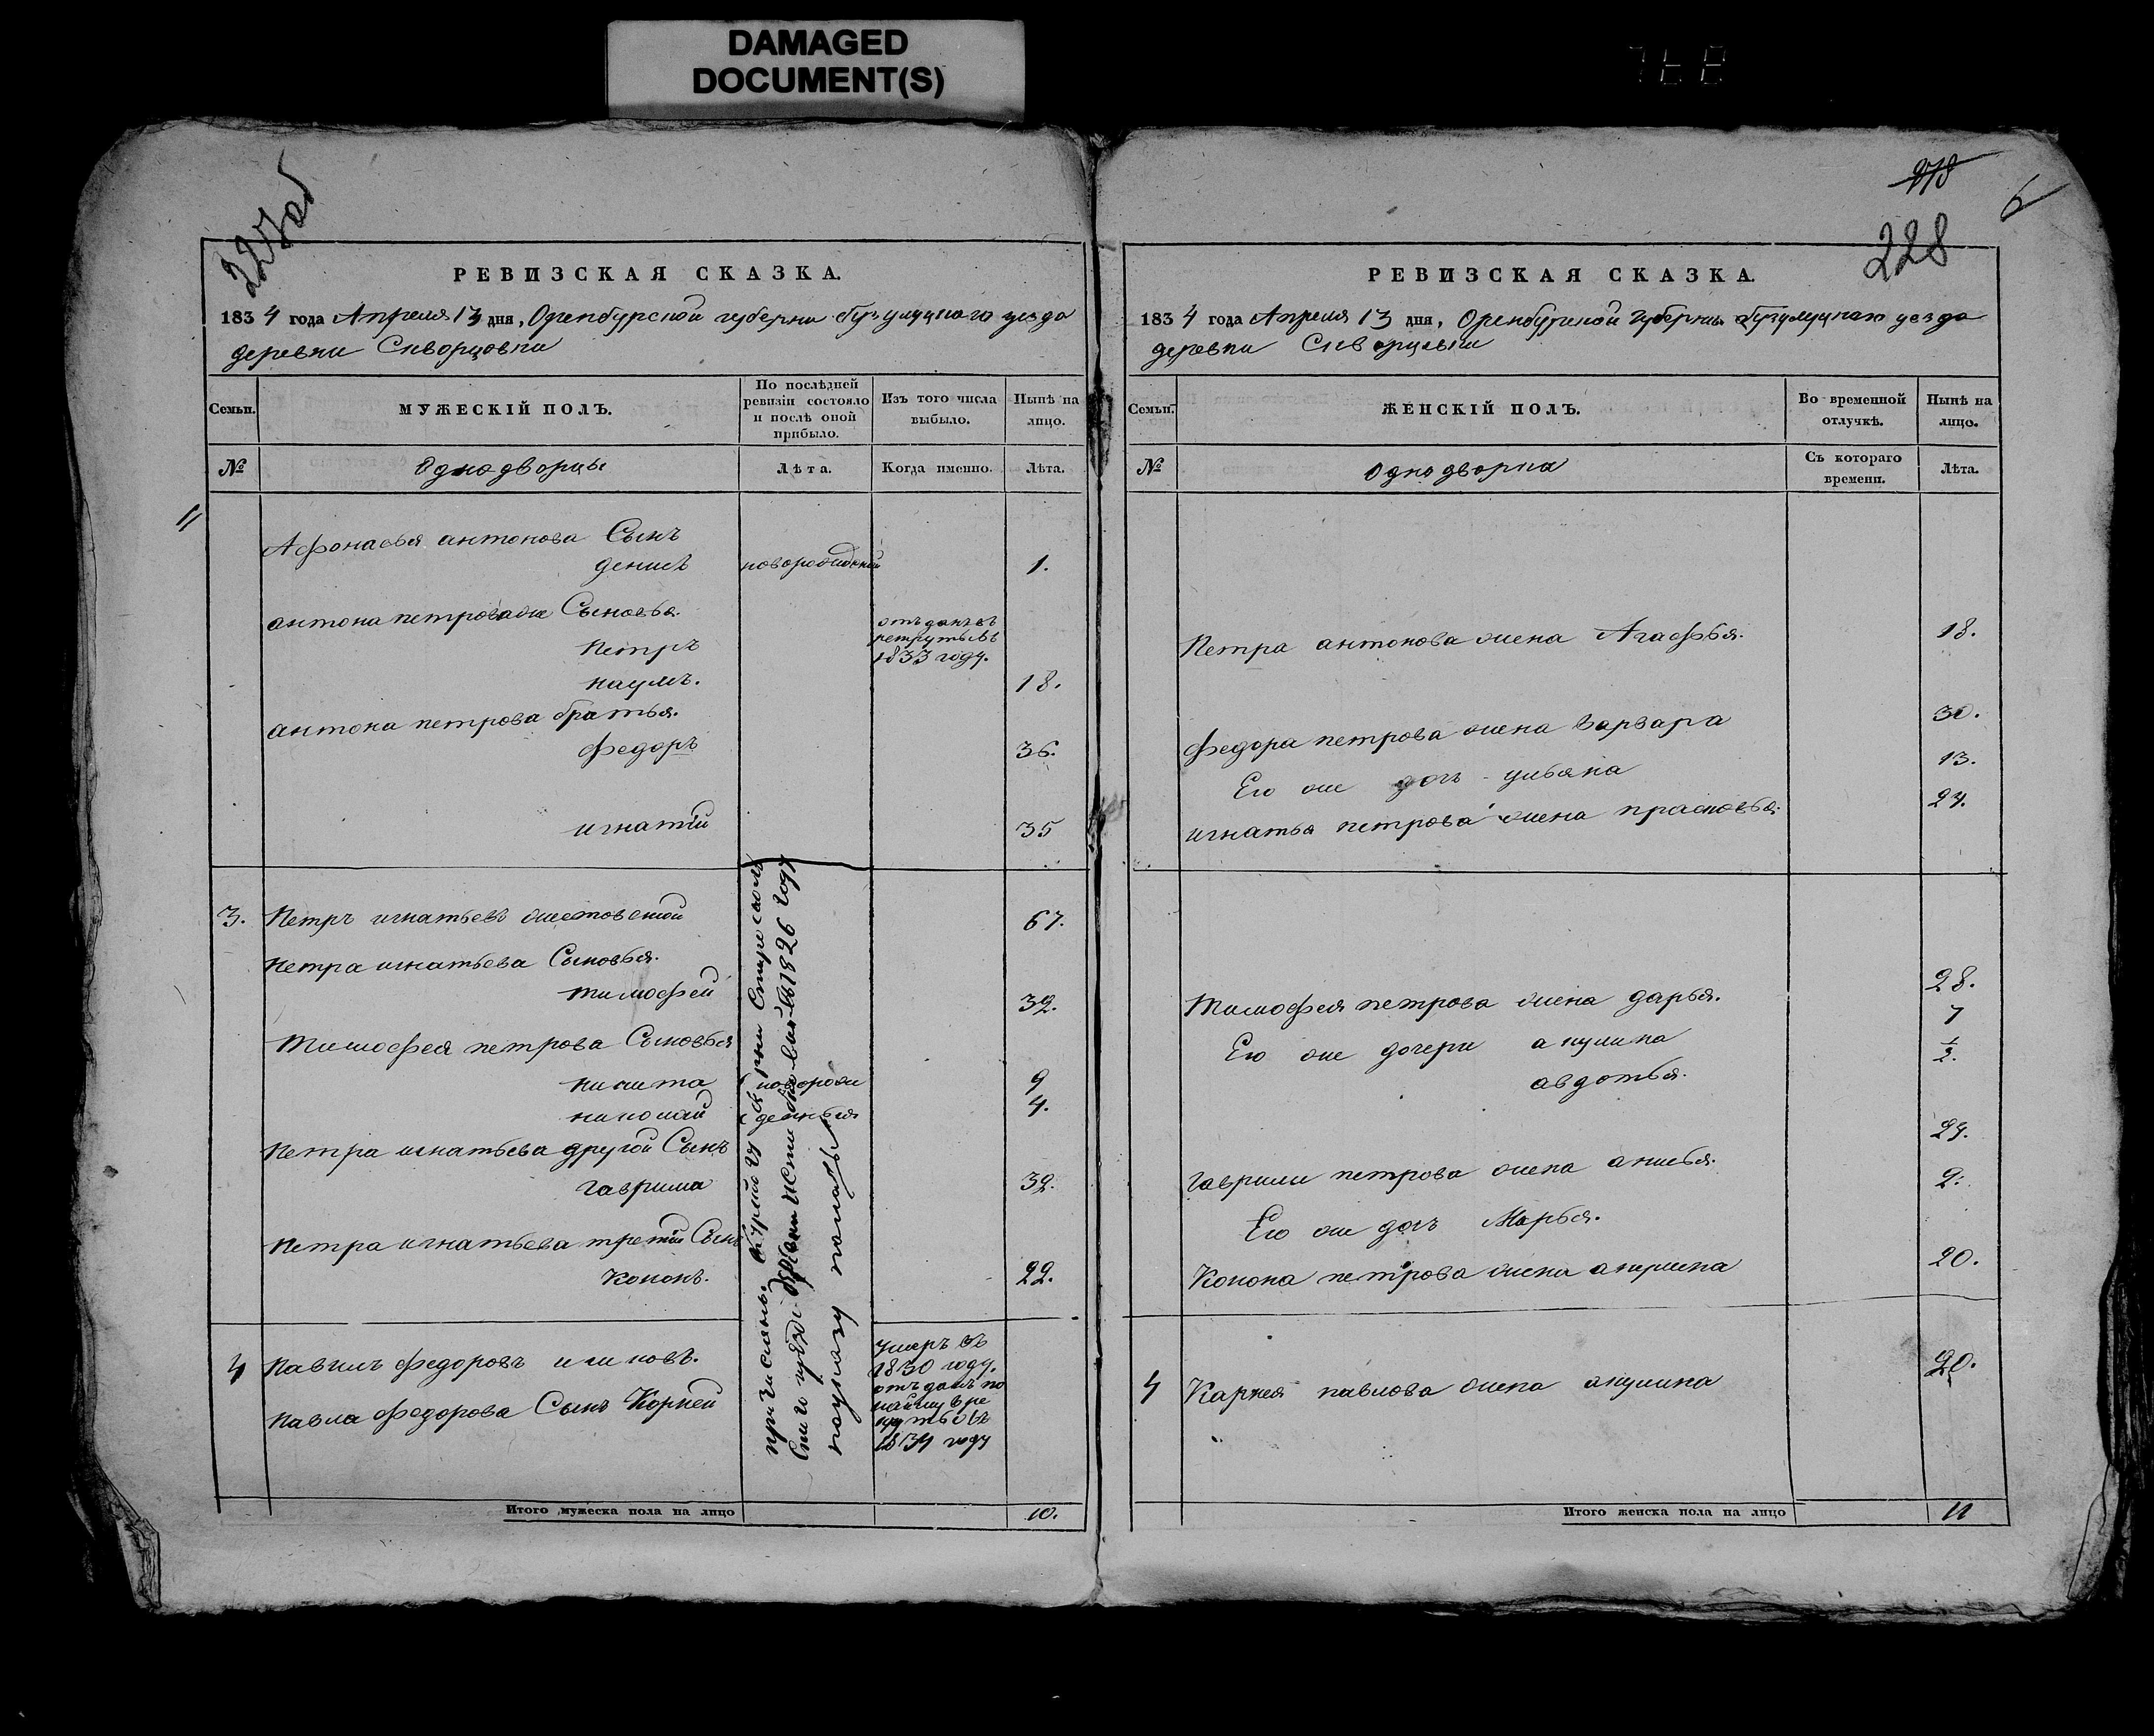 DAMAGED
DOCUMENT(S)
227об
РЕВИЗСКАЯ СКАЗКА.
1834 года Апреля 13 дня, Оренбурской губерни бузулуцкаго уезда
деревни Скворцовки
Семьи.
МУЖЕСКІЙ ПОЛЪ.
По послѣдней
ревизіи состояло
и послѣ оной
прибыло.
Изъ того числа
выбыло.
Нынѣ на
лицо.
№
Однодворцы
Лѣта.
Когда именно.
Лѣта.
11
Афонасья антонова Сынъ
денисъ новорожденой 1.
антона петрова же Сыновья.
петръ
отъданъ въ
рекруты въ
1833 году.
наумъ. 18.
антона петрова братья.
федоръ 36.
игнатій 35
3. Петръ игнатьевъ 67.
петра игнатьева Сыновья.
тимофей 32.
Тимофея петрова Сыновья
никита новорож 9
николай денныя 4.
петра игнатьева другой Сынъ
гаврила 32.
петра игнатьева третій Сынъ
Кононъ. 22.
причислены
1826 году
по указу палаты
4 павилъ федоровъ
умеръ въ
1830 году.
павла федорова Сынъ Корней
отъданъ по
найму в ре
куты въ
1834 году
Итого мужеска пола на лицо 10.
218
6
228
РЕВИЗСКАЯ СКАЗКА.
1834 года Апреля 13 дня, Оренбургской Губерни бузулуцкаго уезда
деревни Скворцовки
Семьи.
ЖЕНСКІЙ ПОЛЪ.
Во временной
отлучкѣ.
Нынѣ на
лицо.
№
Однодворки
Съ котораго
времени.
Лѣта.
Петра антонова жена Агафья. 18.
федора петрова жена варвара 30.
Его же дочь ульяна 13.
игнатья петрова жена прасковья. 24.
Тимофея петрова жена дарья. 28.
Его же дочери акулина 7
авдотья. ½.
гаврилы петрова жена анисья. 29.
Его же дочь Марья. 2.
Конона петрова жена акулина 20.
4 Карнея павлова жена акулина 20.
Итого женска пола на лицо 11